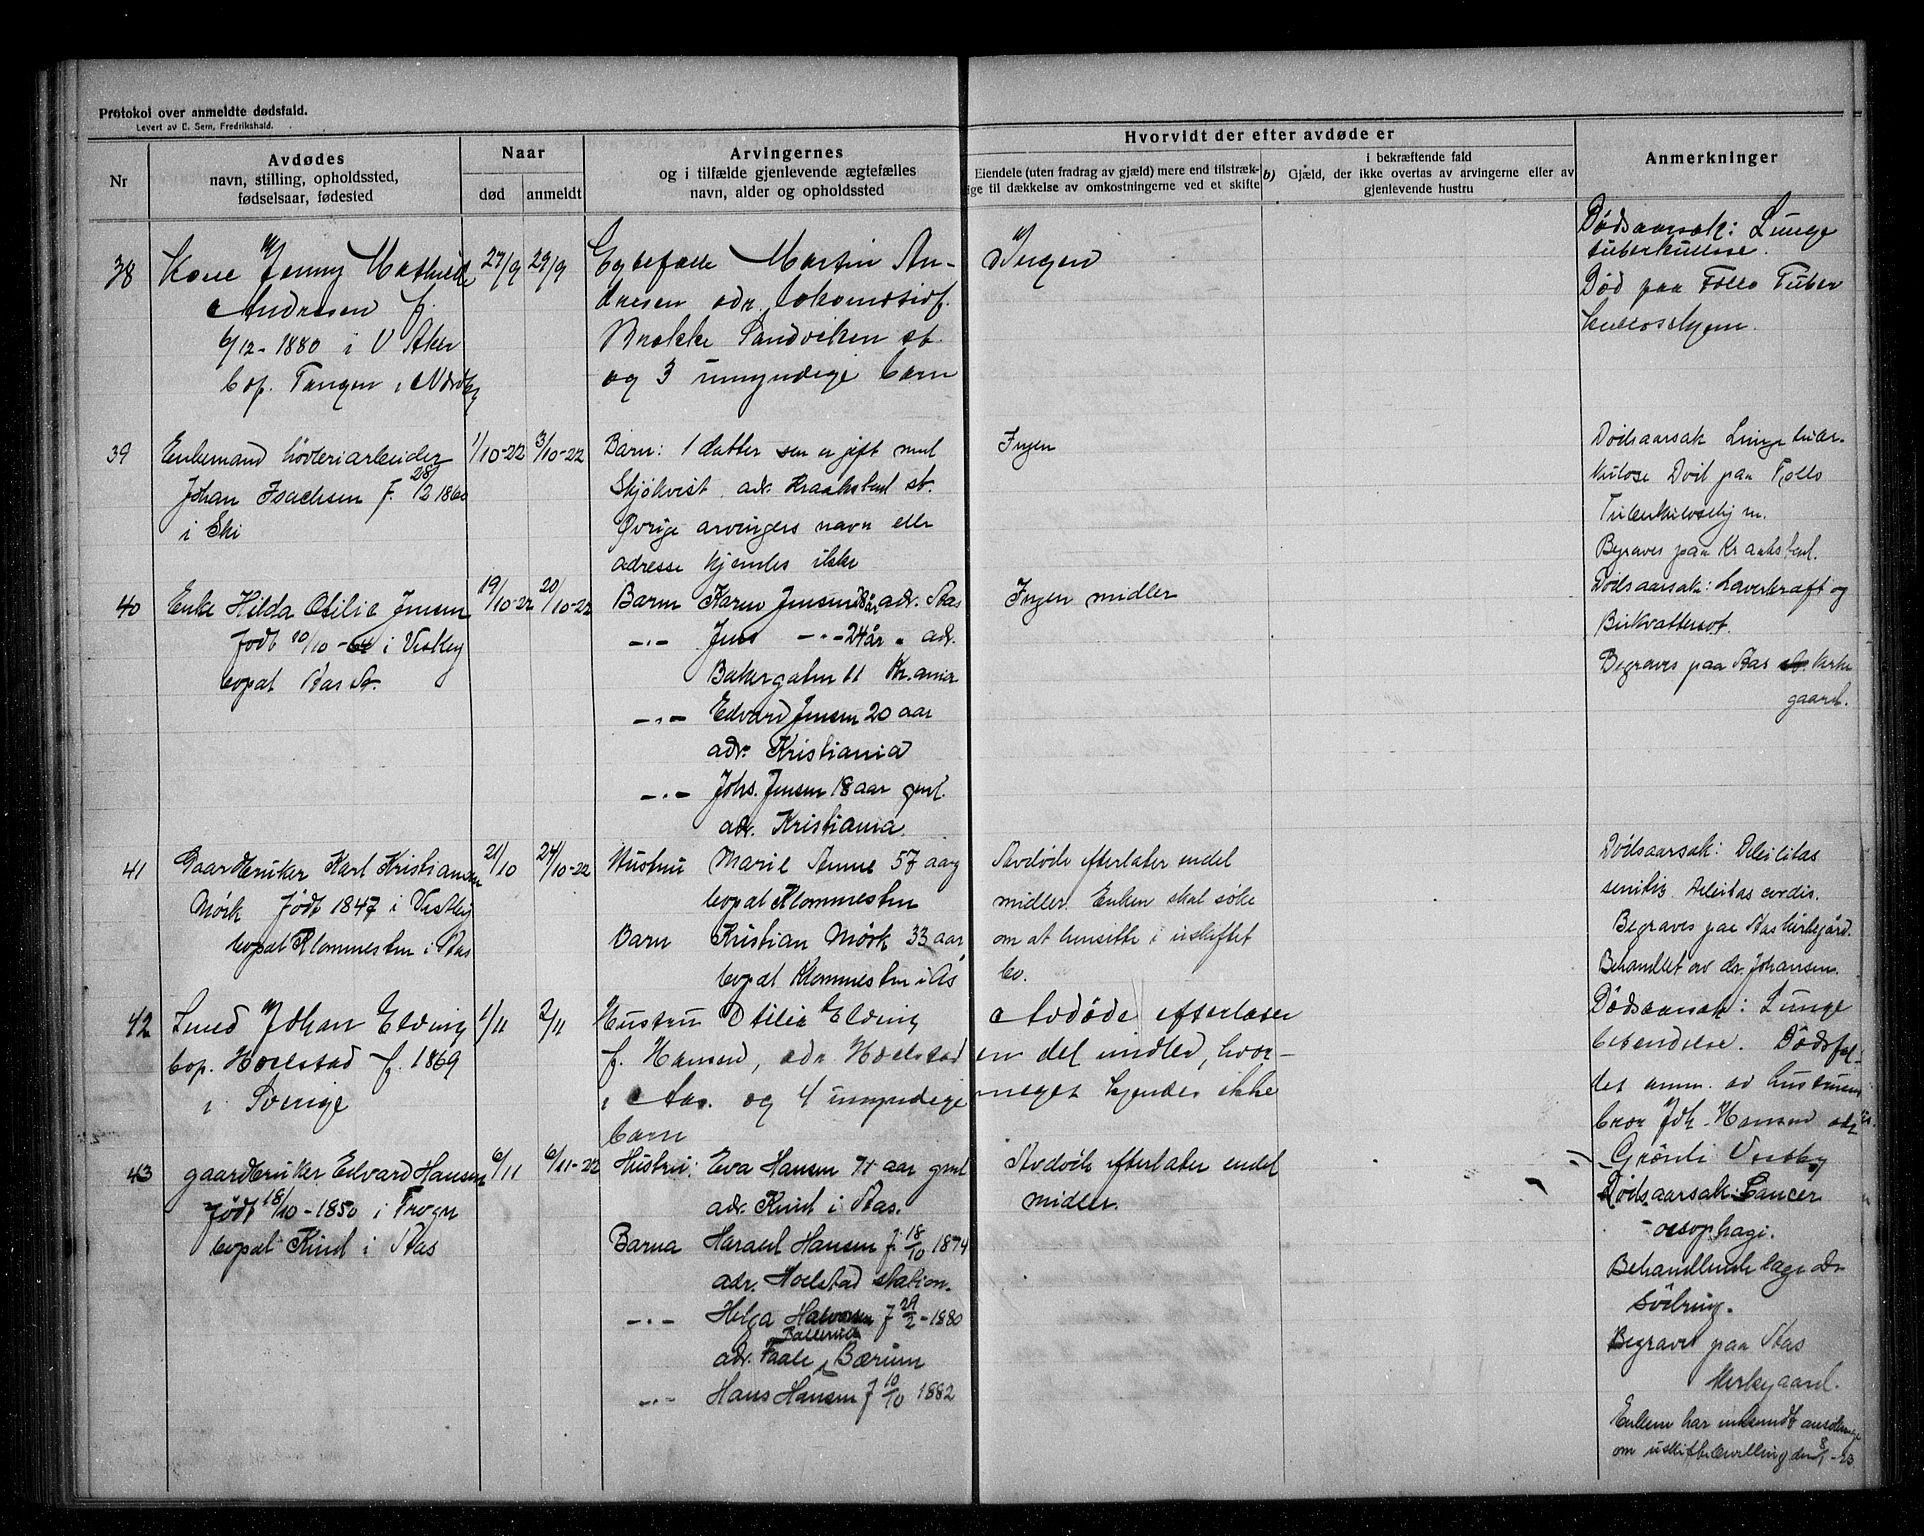 Protokol over anmeldte dødsfald.
Levert av E. Sem, Fredrikshald.
Nr
Avdødes
navn, stilling, opholdssted,
fødselsaar, fødested
Naar
død
anmeldt
Arvingernes
og i tilfælde gjenlevende ægtefælles
navn, alder og opholdssted
Hvorvidt der efter avdøde er
Eiendele (uten fradrag av gjæld) mere end tilstræk-
ige til dækkelse av omkostningerne ved et skifte
b) Gjæld, der ikke overtas av arvingerne eller av
i bekræftende fald
gjenlevende hustru
Anmerkninger
38
Kone Jenny Mathilde
Andresen f.
6/12-1880 i V Aker
bop. Tangen i Nordby
27/9
29/9
Egtefælle Martin An-
dresen adr. lokomotivf.
Brække Sandviken st.
og 3 umyndige barn
Ingen
Dødsaarsak: Lunge
tuberkulose.
Død paa Follo Tuber
kulosehjem.
39
Enkemand høvleriarbeider
Johan Isachsen f. 28/12 1860
i Ski
1/10-22
3/10-22
Barn: 1 datter som er gift med
Skjøkvist adr. Kraakstad st.
Øvrige arvingers navn eller
adresse kjendes ikke
Ingen
Dødsaarsak Lunge tuber-
kulose Død paa Follo
Tuberkulosehjem.
Begraves paa Kraakstad.
40
Enke Hilda Otilie Jensen
født 10/10-64 i Vestby
bopæl Aas St.
19/10-22
20/10-22
Barn Karen Jensen 28 år adr. Aas
-"- Jens -"- 24 år " adr.
Bakergaten 11 Kr.ania
-"- Edvard Jensen 20 aar
adr. Kristiania
-"- Johs. Jensen 18 aar gml.
adr. Kristiania.
Ingen midler
Dødsaarsak: Leverkræft og
Bukvattersot.
Begraves paa Aas kirke
gaard.
41
Gaardbruker Karl Kristiansen
Mørk født 1847 i Vestby
bopæl Klommesten i Aas
21/10
24/10-22
Hustru Marie Anne 57 aar
bopæl Klommesten
Barn Kristian Mørk 33 aar
bopæl Klommesten i Ås
Avdøde efterlater endel
midler. Enken skal søke
om at hensitte i uskiftet
bo.
Dødsaarsak: Debilitas
senilis. Debilitas cordis.
Begraves paa Aas kirkegård.
Behandlet av dr. Johansen.
42
Smed Johan Elving
bop. Holstad f. 1869
i Sverige
1/11
2/11
Hustru Otilie Elving
f. Hansen, adr Holstad
i Aas. og 4 umyndige
barn
Avdøde efterlater
en del midler, hvor-
meget kjendes ikke
Dødsaarsak: Lunge
betendelse. Dødsfal-
det anm. av hustruens
bror Joh. Hansen adr
Grønli Vestby
43
gaardbruker Edvard Hansen
født 18/10-1850 i Frogn
bopæl Kind i Aas
6/11
6/11-22
Hustru: Eva Hansen 71 aar gml
adr. Kind i Aas.
Barna Harald Hansen f. 18/10 1874
adr. Holstad station.
-"- Helga Halvorsen f 29/2-1880
adr. Faale Ballerud Bærum
-"- Hans Hansen f 10/10 1882
Avdøde efterlater endel
midler.
Dødsaarsak: Cancer
oesophagi.
Behandlende læge dr
Sølbring.
Begraves paa Aas
Kirkegaard.
Enken har indsendt ansökning
om uskiftbevilling den 8/1-23.